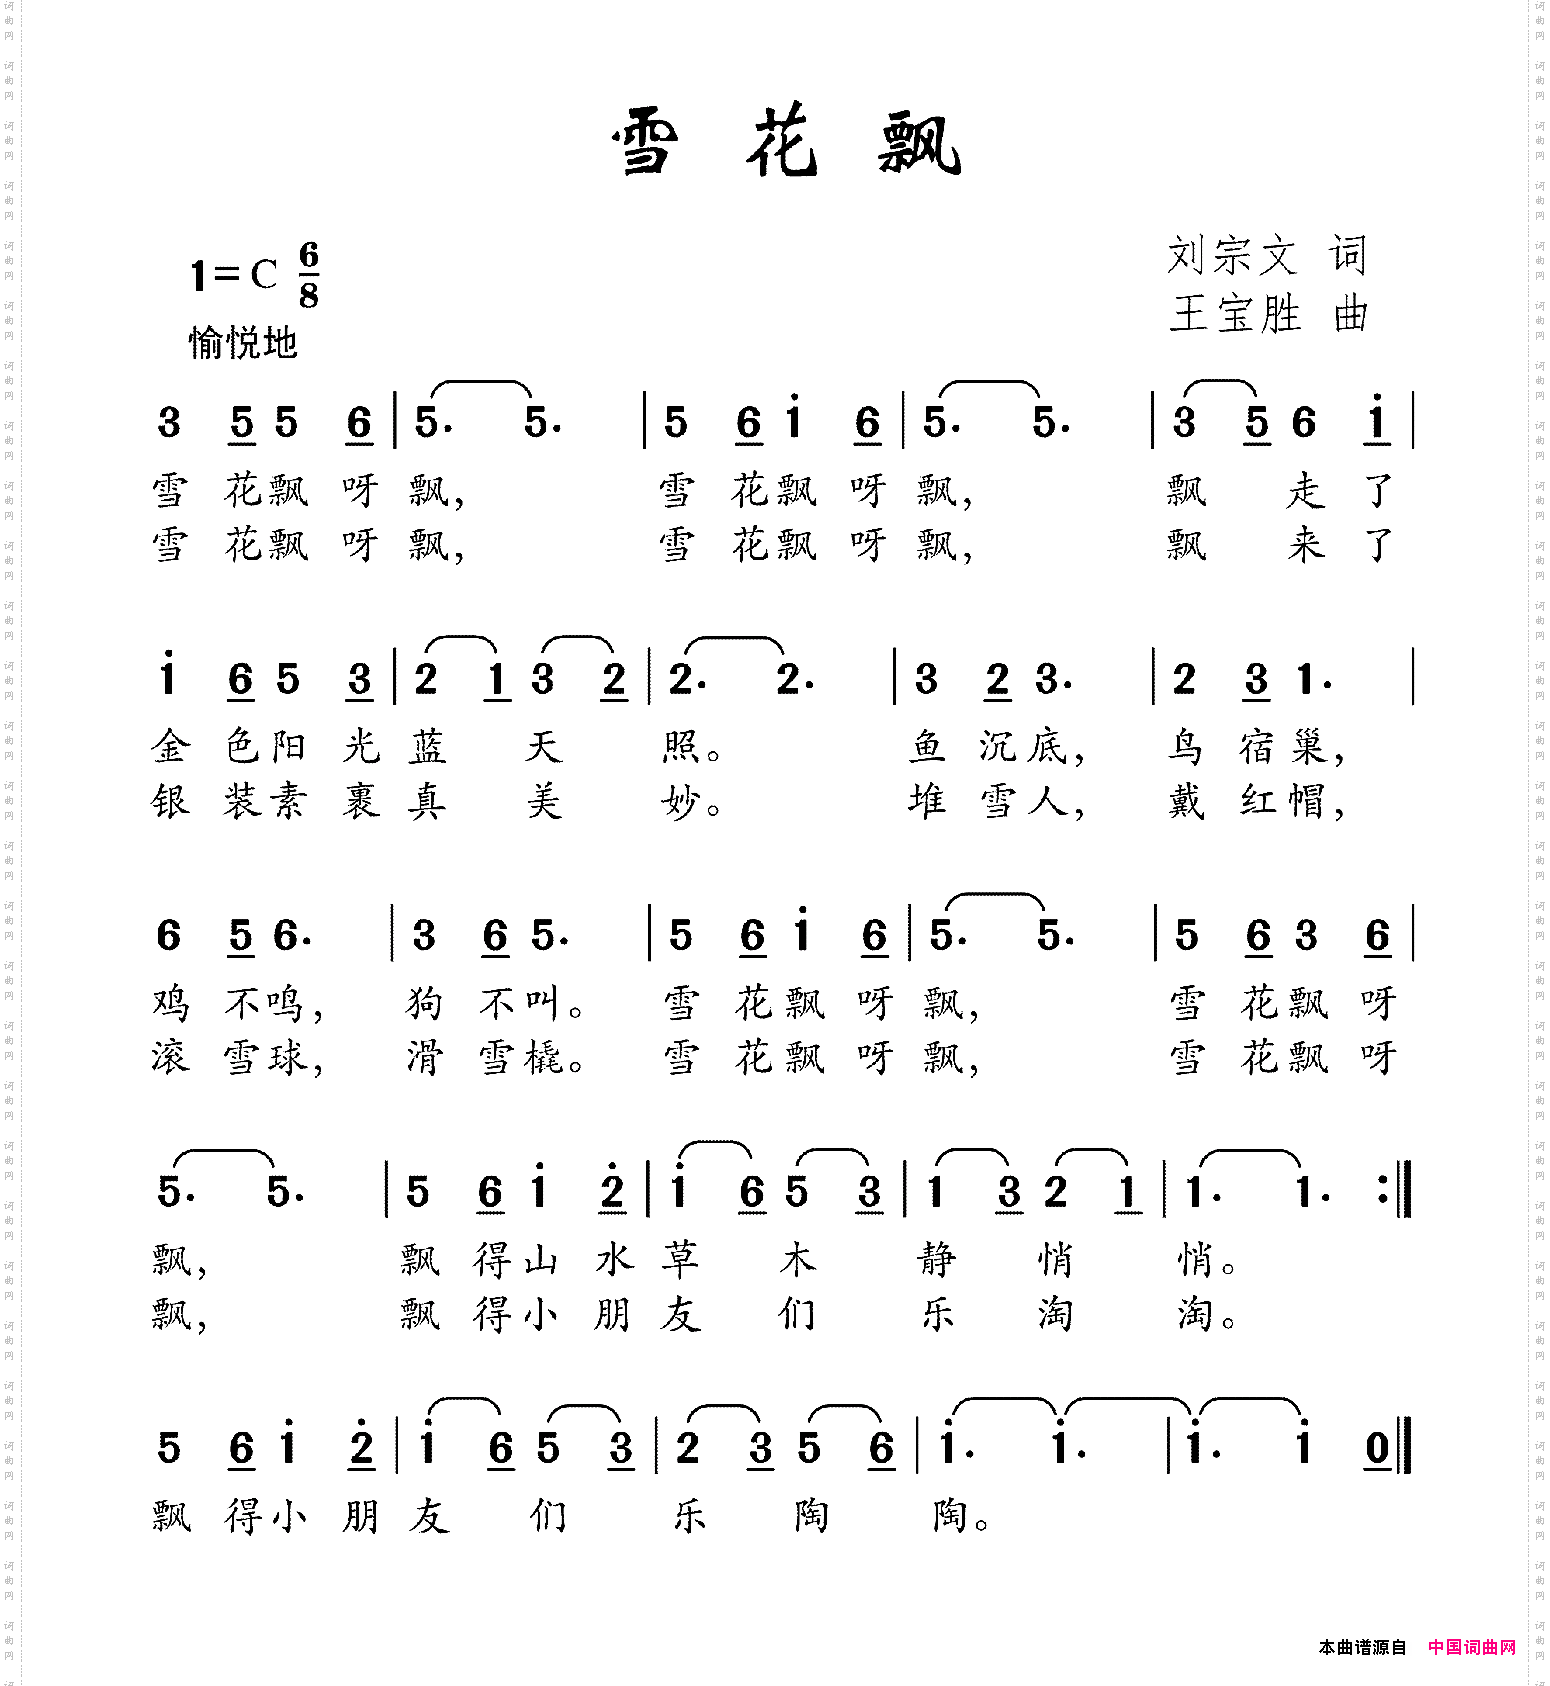 雪 花 飘
1=C 6/8
刘宗文 词
王宝胜 曲
愉悦地
3 5 5 6 | 5. 5. | 5 6 i 6 | 5. 5. | 3 5 6 i |
雪 花 飘 呀 飘, 雪 花 飘 呀 飘, 飘 走 了
雪 花 飘 呀 飘, 雪 花 飘 呀 飘, 飘 来 了
i 6 5 3 | 2 1 3 2 | 2. 2. | 3 2 3. | 2 3 1. |
金 色 阳 光 蓝 天 照。 鱼 沉 底, 鸟 宿 巢,
银 装 素 裹 真 美 妙。 堆 雪 人, 戴 红 帽,
6 5 6. | 3 6 5. | 5 6 i 6 | 5. 5. | 5 6 3 6 |
鸡 不 鸣, 狗 不 叫。 雪 花 飘 呀 飘, 雪 花 飘 呀
滚 雪 球, 滑 雪 橇。 雪 花 飘 呀 飘, 雪 花 飘 呀
5. 5. | 5 6 i 2̇ | i 6 5 3 | 1 3 2 1 | 1. 1. :‖
飘, 飘 得 山 水 草 木 静 悄 悄。
飘, 飘 得 小 朋 友 们 乐 淘 淘。
5 6 i 2̇ | i 6 5 3 | 2 3 5 6 | i. i. | i. i 0 ‖
飘 得 小 朋 友 们 乐 陶 陶。
本曲谱源自 中国词曲网